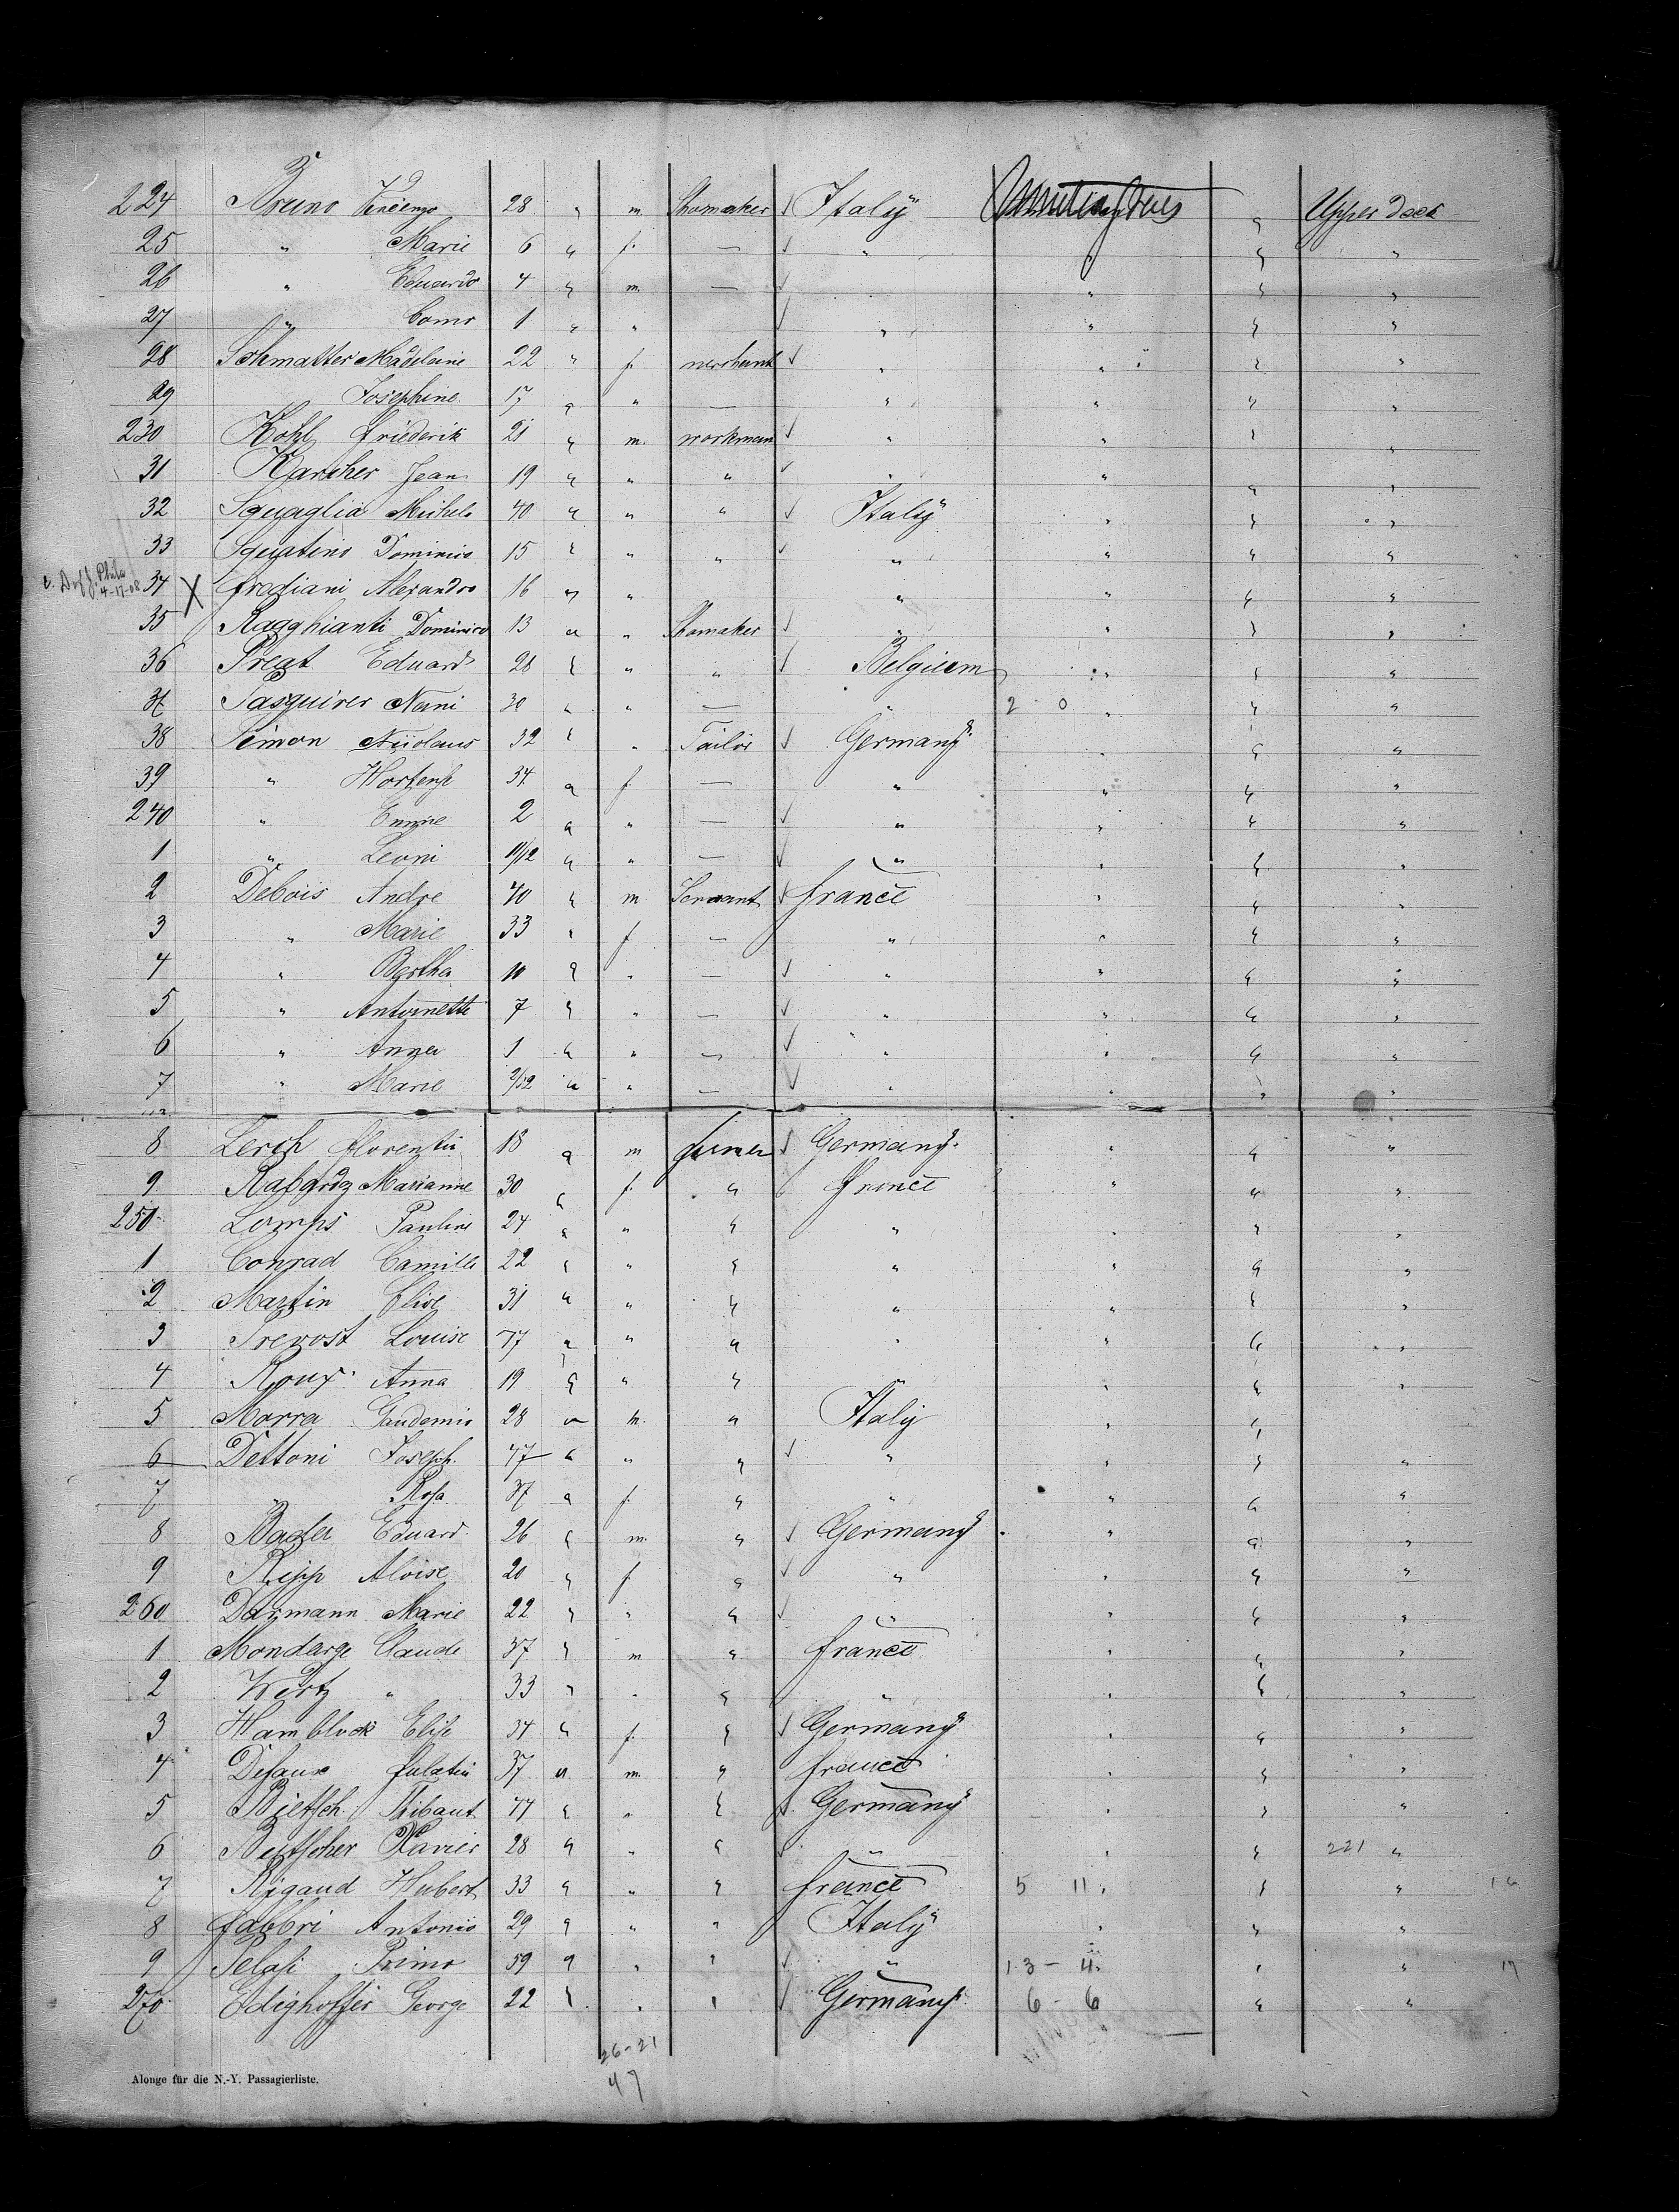 224 Bruno Vincenzo 28 " m. Shomaker √ Italy United States " Upper deck
25 " Marie 6 " f. — √ " " " "
26 " Eduardo 4 " m. — √ " " " "
27 " Como 1 " " √ " " " "
28 Schmatter Madeleine 22 " f. merchant √ " " " "
29 Josephine 17 " " — " " " "
230 Kohl friederik 21 " m. workman √ " " " "
31 Karcher Jean 19 " " " √ " " " "
32 Squaglia Michele 40 " " " √ Italy " " "
33 Squatino Dominico 15 " " " √ " " " "
Phila 4-17-08 34 X frediani Alexandro 16 " " " " " "
35 Ragghianti Dominico 13 " " Shomaker √ " " " "
36 Preat Eduard 28 " " " √ Belgium " " "
37 Pasquirer Neni 30 " " — " 2 0 " " "
38 Simon Nicolaus 32 " " Tailor √ Germany " " "
39 " Hortense 34 " f. — " " " "
240 " Emmie 2 " " — √ " " " "
1 " Leoni 11/12 " " — √ " " " "
2 Debois Andre 40 " m Servant √ france " " "
3 " Marie 33 " f — " " " "
4 " Bertha 10 " " — √ " " " "
5 " Antoinette 7 " " — √ " " " "
6 " Anna 1 " " — √ " " " "
7 " Marie " " — √ " " " "
8 Lerch florentin 18 " m √ Germany " " "
9 Marianne 30 " f. " france " " "
250 Lomps Pauline 24 " " " " " " "
1 Conrad Camille 22 " " " " " " "
2 Martin Elise 31 " " " " " " "
3 Prevost Louise " " " " " " "
4 Roux Anna 19 " " " " " "
5 Marra Gaudemio 28 " m. " Italy " "
6 Dettoni Joseph 47 " " " √ " " " "
7 " Rosa 37 " f. " " " " "
8 Bader Eduard 26 " m. " √ Germany " " "
9 Ripp Aloise 20 " f " √ " " " "
260 Darmann Marie 22 " " " √ " " " "
1 Mondarge Claude 37 " m " france " " "
2 Wirtz " 33 " " " " " " "
3 Hamblock Elise 34 " f. " √ Germany " " "
4 37 " m. " france " " "
5 Bietsch Thibaut 44 " " " √ Germany " " "
6 Beutscher Xavier 28 " " " √ " " " 221 "
7 Rigaud Hubert 33 " " " france 5 11 " " "
8 fabbri Antonio 29 " " " Italy " " "
9 Pelasi Primo 59 " " " √ " 13 - 4 " " 17
270 Edighoffer George 22 " " " √ Germany 6 - 6 " "
26-21
47
Alonge für die N.-Y. Passagierliste.